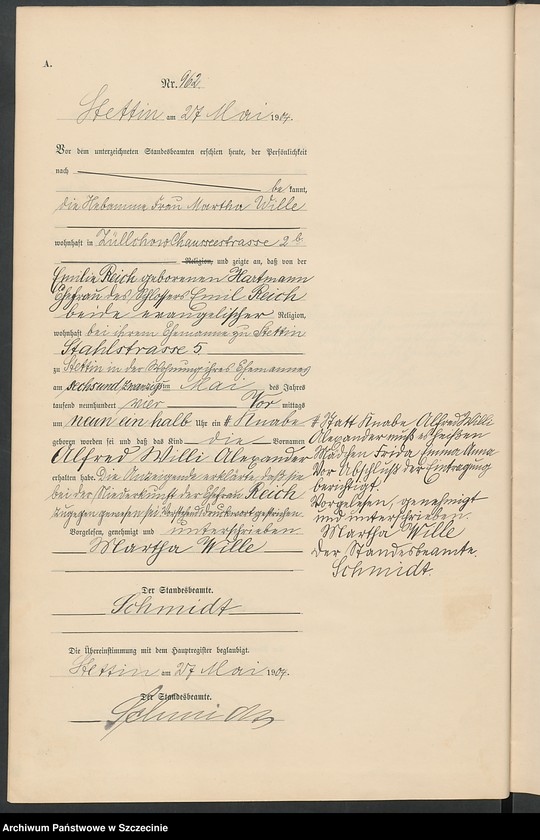 A.
Nr. 962.
Stettin am 27 Mai 1904.
Vor dem unterzeichneten Standesbeamten erschien heute, der Persönlichkeit
nach
be kannt,
die Hebamme Frau Martha Wille
wohnhaft in Züllchow Chausseestrasse 2 b
Religion, und zeigte an, daß von der
Emilie Reich geborenen Hartmann
Ehefrau des Schlossers Emil Reich
beide evangelischer Religion,
wohnhaft bei ihrem Ehemanne zu Stettin
Stahlstrasse 5
zu Stettin in der Wohnung ihres Ehemannes
am sechsundzwanzigsten Mai des Jahres
tausend neunhundert vier Vor mittags
um neun ein halb Uhr ein # Knabe
geboren worden sei und daß das Kind die Vornamen
Alfred Willi Alexander
erhalten habe. Die Anzeigende erklärte, daß sie
bei der Niederkunft der Ehefrau Reich
zugegen gewesen sei. Vorstehend Druckwort gestrichen.
Vorgelesen, genehmigt und unterschrieben
Martha Wille
Der Standesbeamte.
Schmidt
Die Übereinstimmung mit dem Hauptregister beglaubigt.
Stettin am 27 Mai 1904.
Der Standesbeamte.
Schmidt
# Statt Knabe Alfred Willi
Alexander muß es heißen
Mädchen Frida Emma Anna
Vor Abschluß der Eintragung
berichtigt.
Vorgelesen, genehmigt
und unterschrieben.
Martha Wille
Der Standesbeamte.
Schmidt.
Archiwum Państwowe w Szczecinie